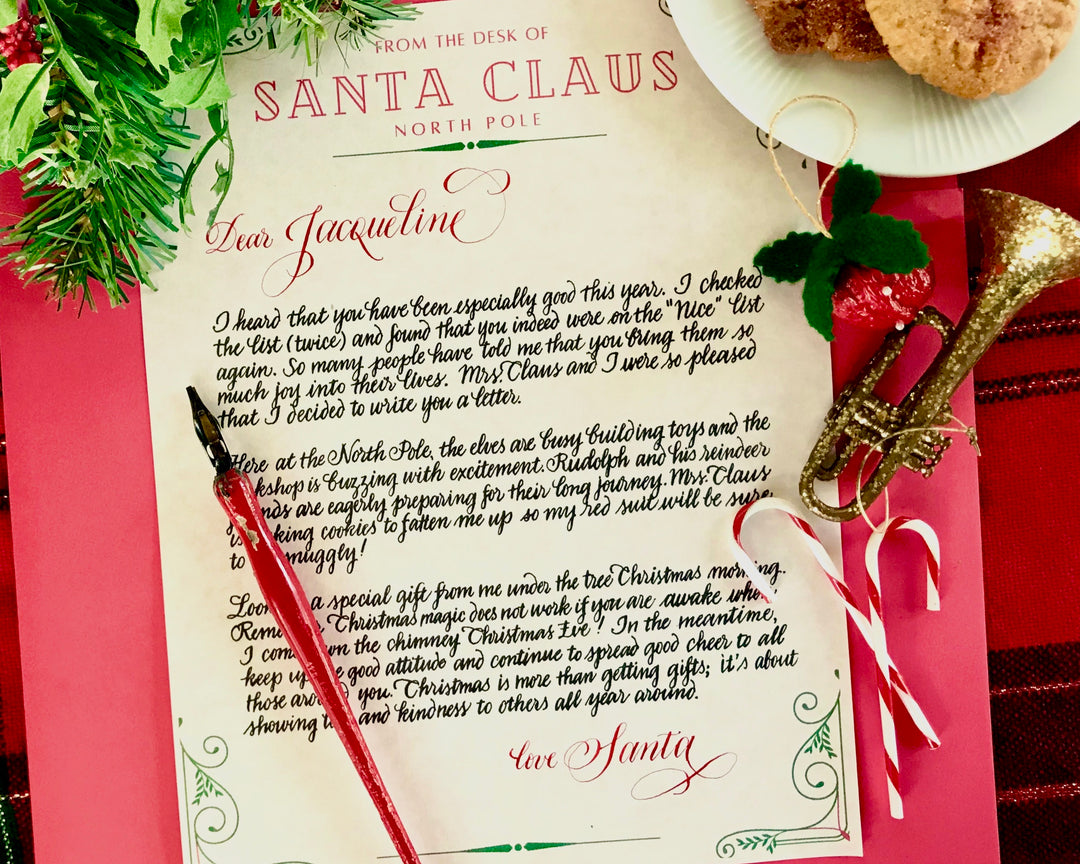 FROM THE DESK OF
SANTA CLAUS
NORTH POLE
Dear Jacqueline
I heard that you have been especially good this year. I checked
the list (twice) and found that you indeed were on the "Nice" list
again. So many people have told me that you bring them so
much joy into their lives. Mrs. Claus and I were so pleased
that I decided to write you a letter.
Here at the North Pole, the elves are busy building toys and the
kshop is buzzing with excitement. Rudolph and his reindeer
nds are eagerly preparing for their long journey. Mrs. Claus
is king cookies to fatten me up so my red suit will be sure
to nuggly!
Loo a special gift from me under the tree Christmas morning.
Reme Christmas magic does not work if you are awake when
I com wn the chimney Christmas Eve! In the meantime,
keep up e good attitude and continue to spread good cheer to all
those aro you. Christmas is more than getting gifts; it's about
showing l and kindness to others all year around.
love Santa